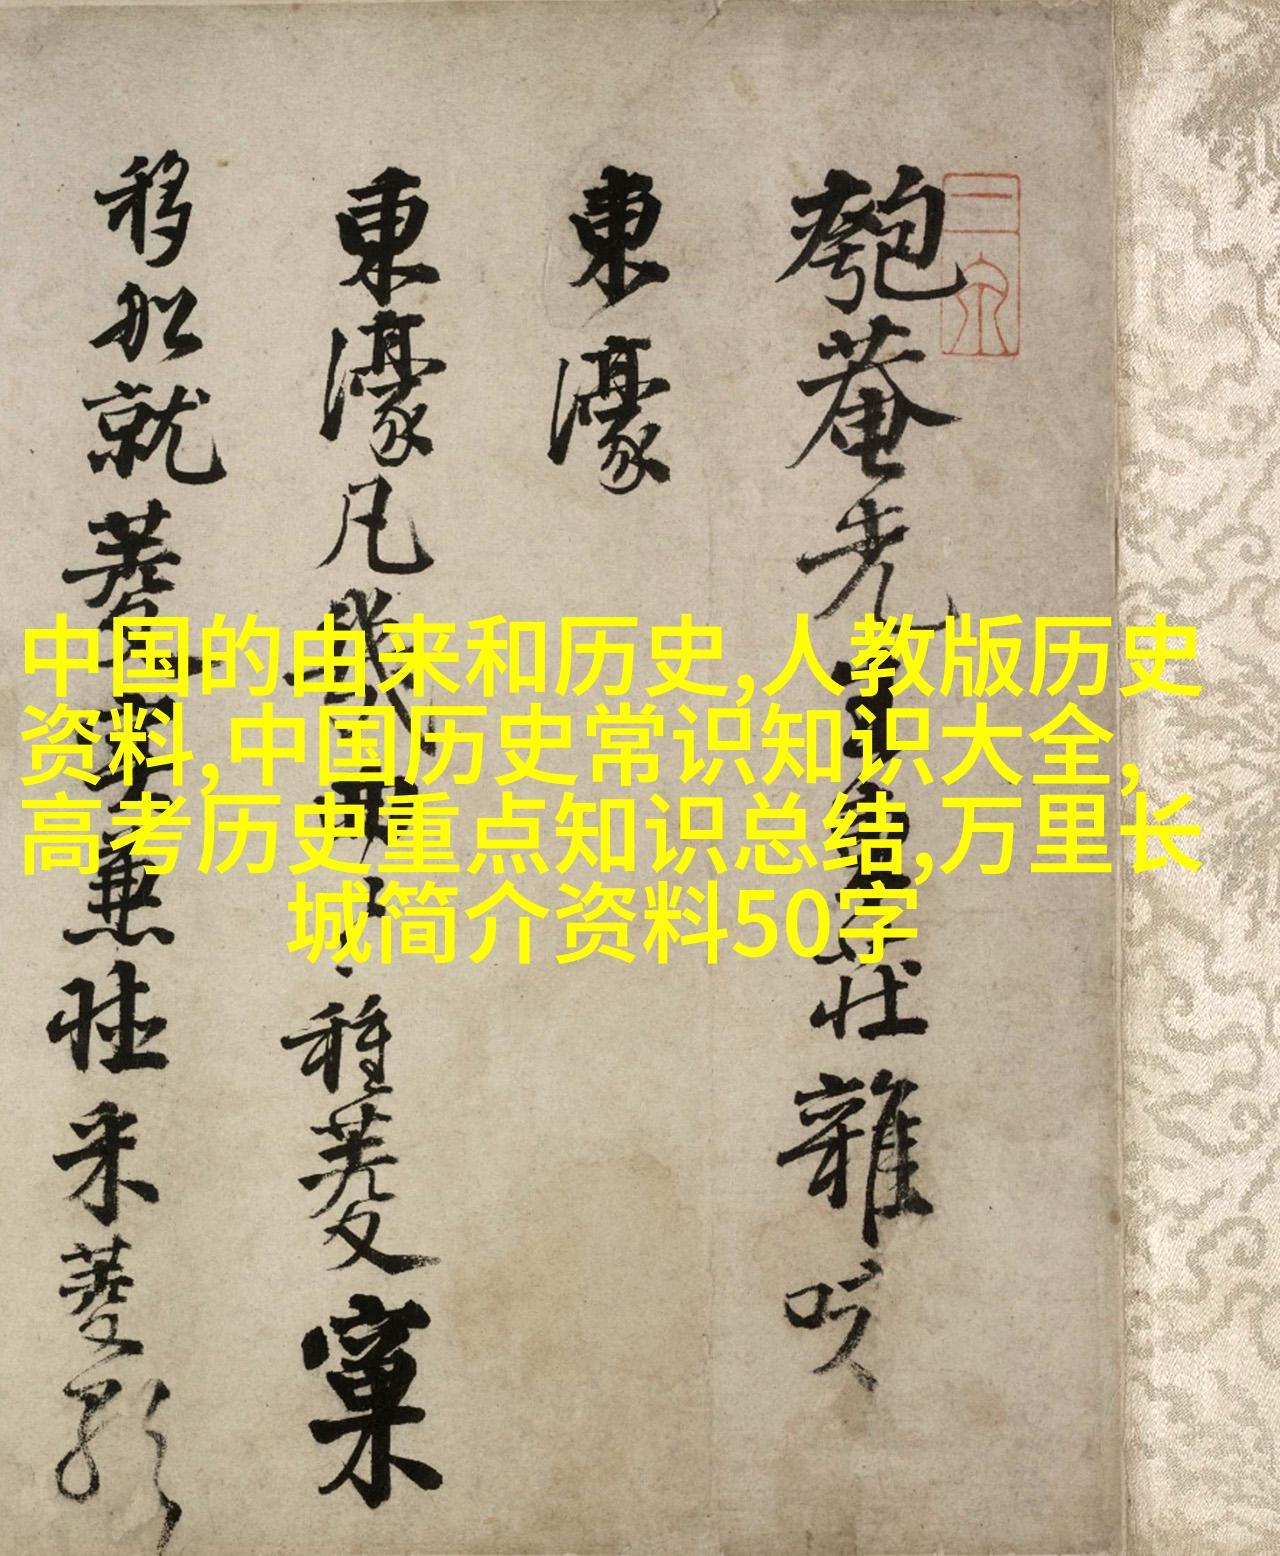 中国的由来和历史,人教版历史
资料,中国历史常识知识大全,
高考历史重点知识总结,万里长
城简介资料50字
匏菴先生莊雜咏
東濠
東濠凡幾種菱窠
移船就兼采菱歌